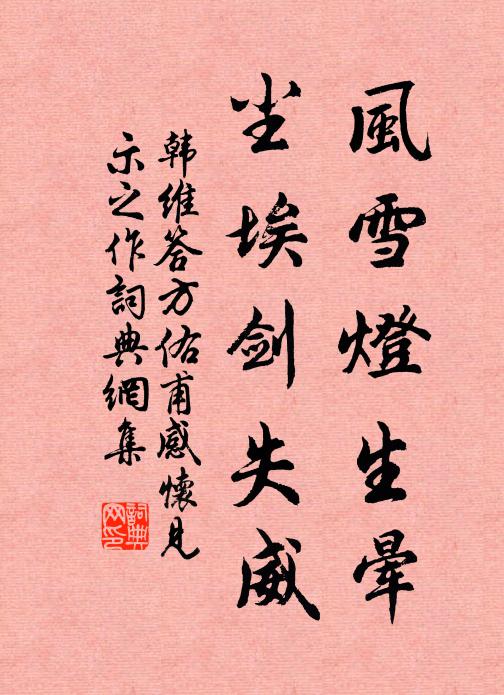 風雪燈生暈
尘埃剑失威
韩维答方佑甫感懷见
示之作詞典網集
詞典网印